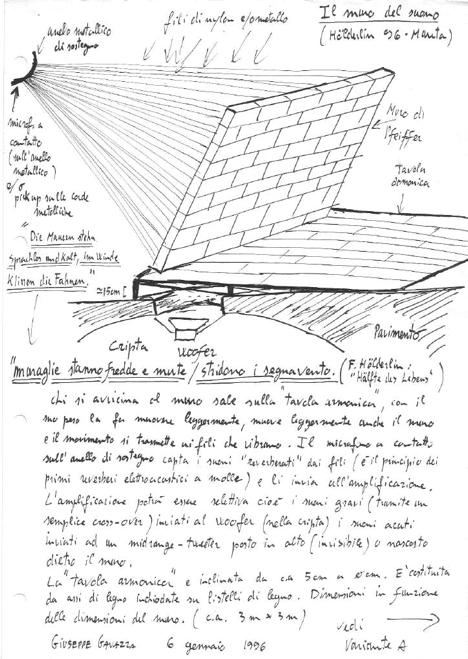 Il muro del suono
(Hölderlin 996 - Manta)
fili di nylon e/o metallo
anello metallico
di sostegno
microf. a
contatto
(sull'anello
metallico)
e/o
pick up sulle corde
metalliche
Muro di
Pfeiffer
Tavola
armonica
"Die Mauern stehn
sprachlos und kalt, im Winde
Klirren die Fahnen."
≃15cm
Cripta
woofer
Pavimento
"muraglie stanno fredde e mute / stridono i segnavento. (F. Hölderlin:
"Hälfte des Lebens")
chi si avvicina al muro sale sulla "tavola armonica", con il
suo peso la fa muovere leggermente, muove leggermente anche il muro
e il movimento si trasmette ai fili che vibrano. Il microfono a contatto
sull'anello di sostegno capta i suoni "riverberati" dai fili (è il principio dei
primi riverberi elettroacustici a molle) e li invia all'amplificazione.
L'amplificazione potrà essere selettiva cioè i suoni gravi (tramite un
semplice cross-over) inviati al woofer (nella cripta) i suoni acuti
inviati ad un midrange-tweeter posto in alto (invisibile) o nascosto
dietro il muro.
La "tavola armonica" è inclinata da c.a 5cm a 0cm. E' costituita
da assi di legno inchiodate su listelli di legno. Dimensioni in funzione
delle dimensioni del muro. (c.a. 3m x 3m)
vedi
Variante A
GIUSEPPE GAVAZZA 6 gennaio 1996